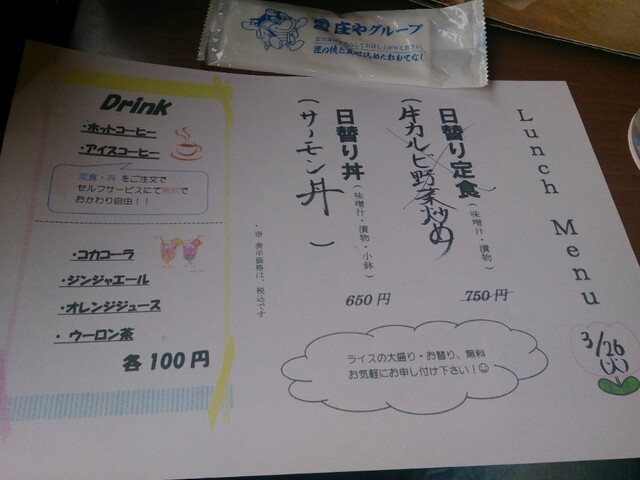 庄やグループ
Lunch Menu
3/26
(火)
日替り定食(味噌汁・漬物)
(牛カルビ野菜炒め
750円
日替り丼(味噌汁・漬物・小鉢)
(サーモン丼)
650円
・※ 表示価格は、税込です
ライスの大盛り・お替り、無料
お気軽にお申し付け下さい!☺
Drink
・ホットコーヒー
・アイスコーヒー
定食・丼 をご注文で
セルフサービスにて無料で
おかわり自由!!
・コカコーラ
・ジンジャエール
・オレンジジュース
・ウーロン茶
各100円